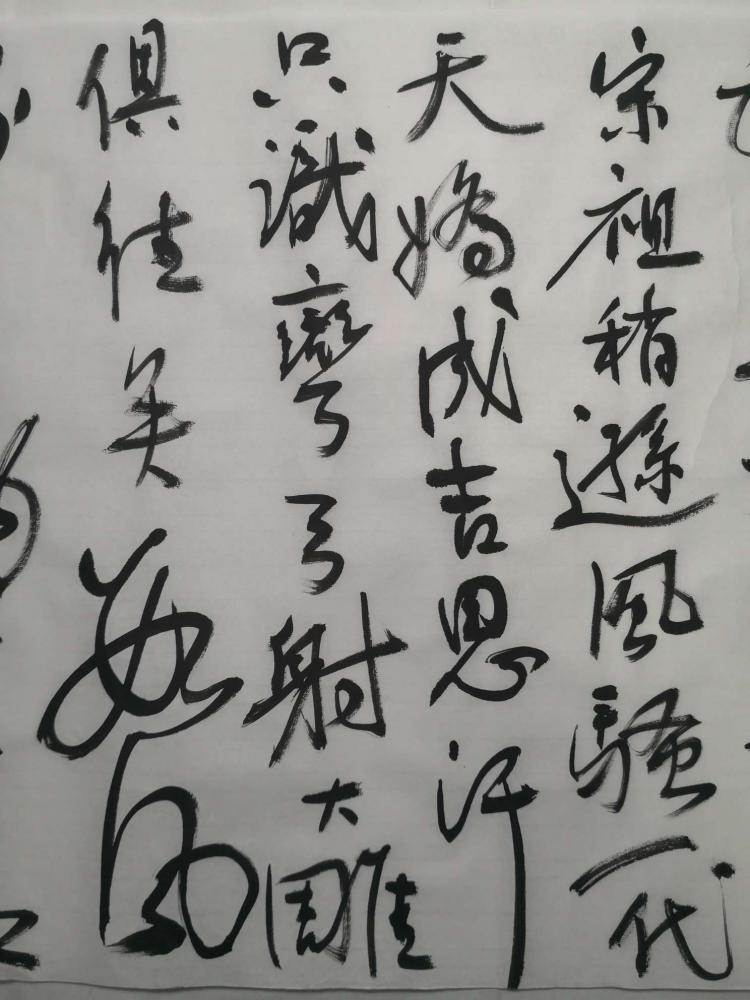 宗祖稍遜風騷一代
天嬌成吉思汗
只識彎弓射大雕
俱往矣數風